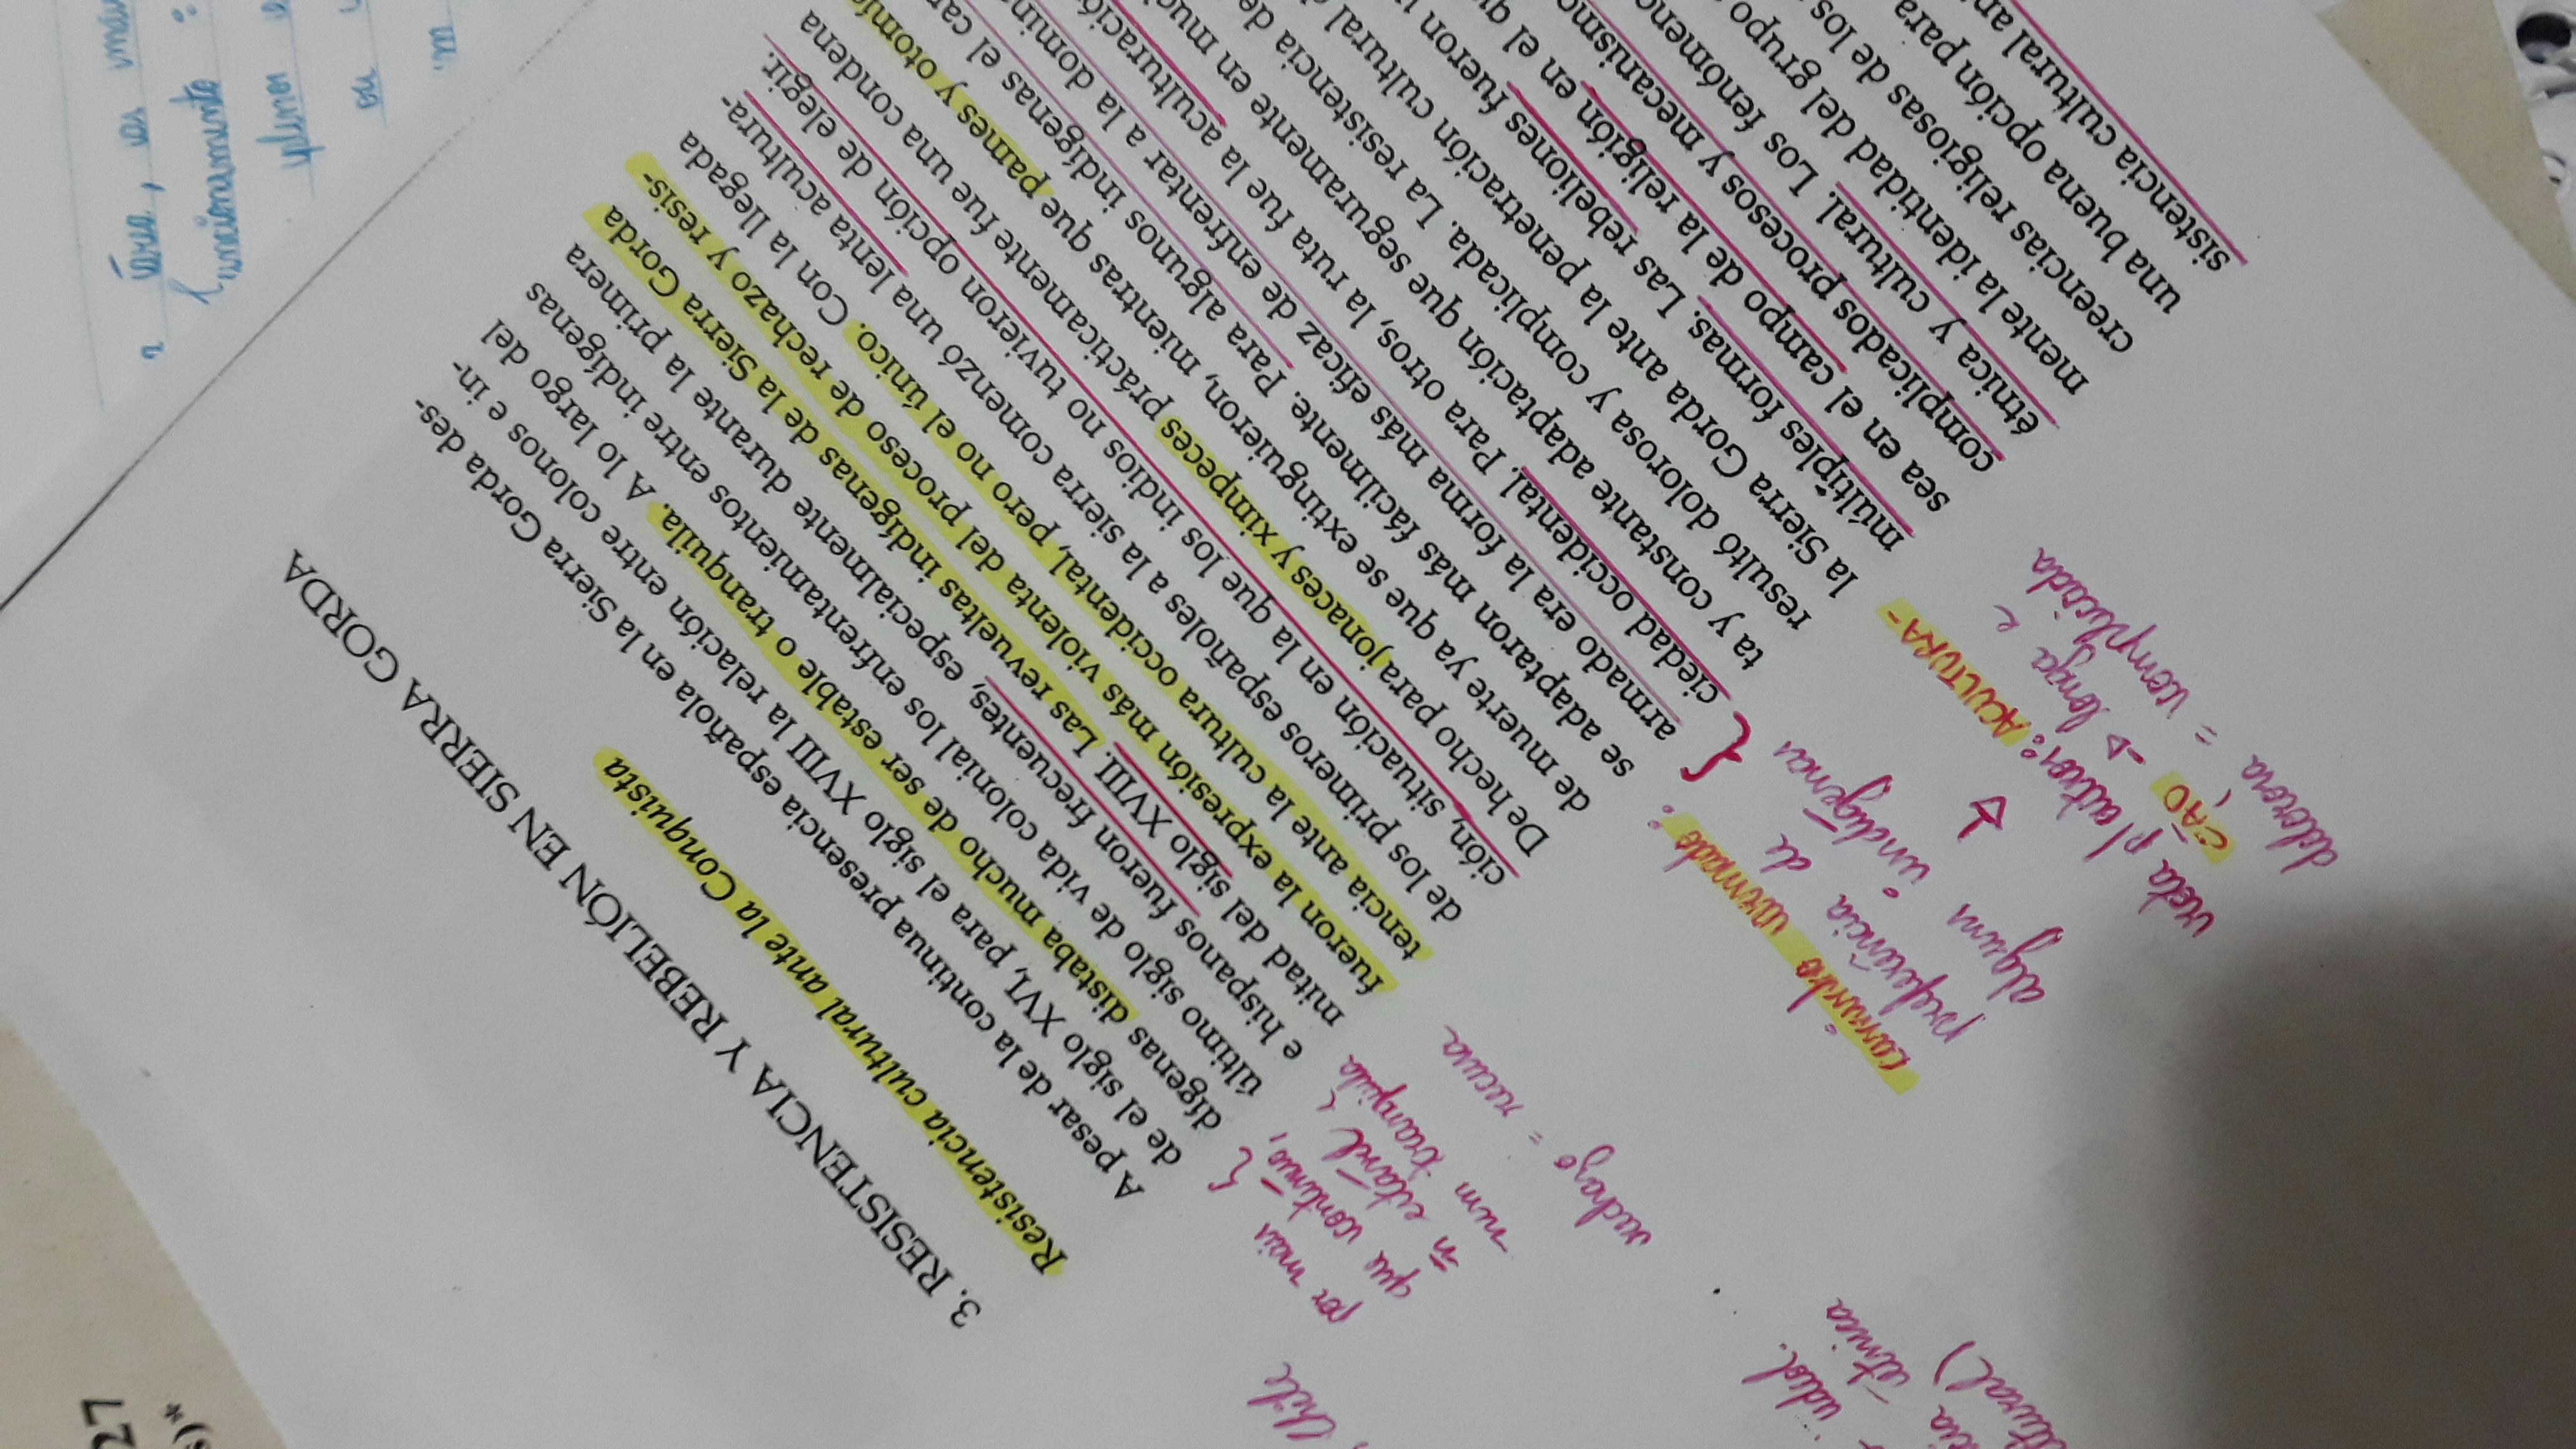 3. RESISTENCIA Y REBELIÓN EN SIERRA GORDA
Resistencia cultural ante la Conquista
A pesar de la continua presencia española en la Sierra Gorda des-
de el siglo XVI, para el siglo XVIII la relación entre colonos e in-
dígenas distaba mucho de ser estable o tranquila. A lo largo del
último siglo de vida colonial los enfrentamientos entre indígenas
e hispanos fueron frecuentes, especialmente durante la primera
mitad del siglo XVIII. Las revueltas indígenas de la Sierra Gorda
fueron la expresión más violenta del proceso de rechazo y resis-
tencia ante la cultura occidental, pero no el único. Con la llegada
de los primeros españoles a la sierra comenzó una lenta acultura-
ción, situación en la que los indios no tuvieron opción de elegir.
De hecho para jonaces y ximpeces prácticamente fue una condena
de muerte ya que se extinguieron, mientras que pames y otomí
se adaptaron más fácilmente. Para algunos indígenas el
armado era la forma más eficaz de enfrentar a la
ciedad occidental. Para otros, la ruta fue la aculturació
ta y constante adaptación que seguramente en
resultó dolorosa y complicada. La resistencia de
la Sierra Gorda ante la penetración cultural
múltiples formas. Las rebeliones fueron
sea en el campo de la religión en el
complicados procesos y mecanismo
étnica y cultural. Los fenómeno
mente la identidad del grupo
creencias religiosas de los
una buena opción para
sistencia cultural an
por mais
que contínuo,
ñ estável
nem tranquila
rechazo = recusa
caminho armado:
preferência de
algum indígenas
rota p/ outros: ACULTURA-
ÇÃO → longa e
dolorosa, = complicada
Chile
étnica
27
funcionamento :